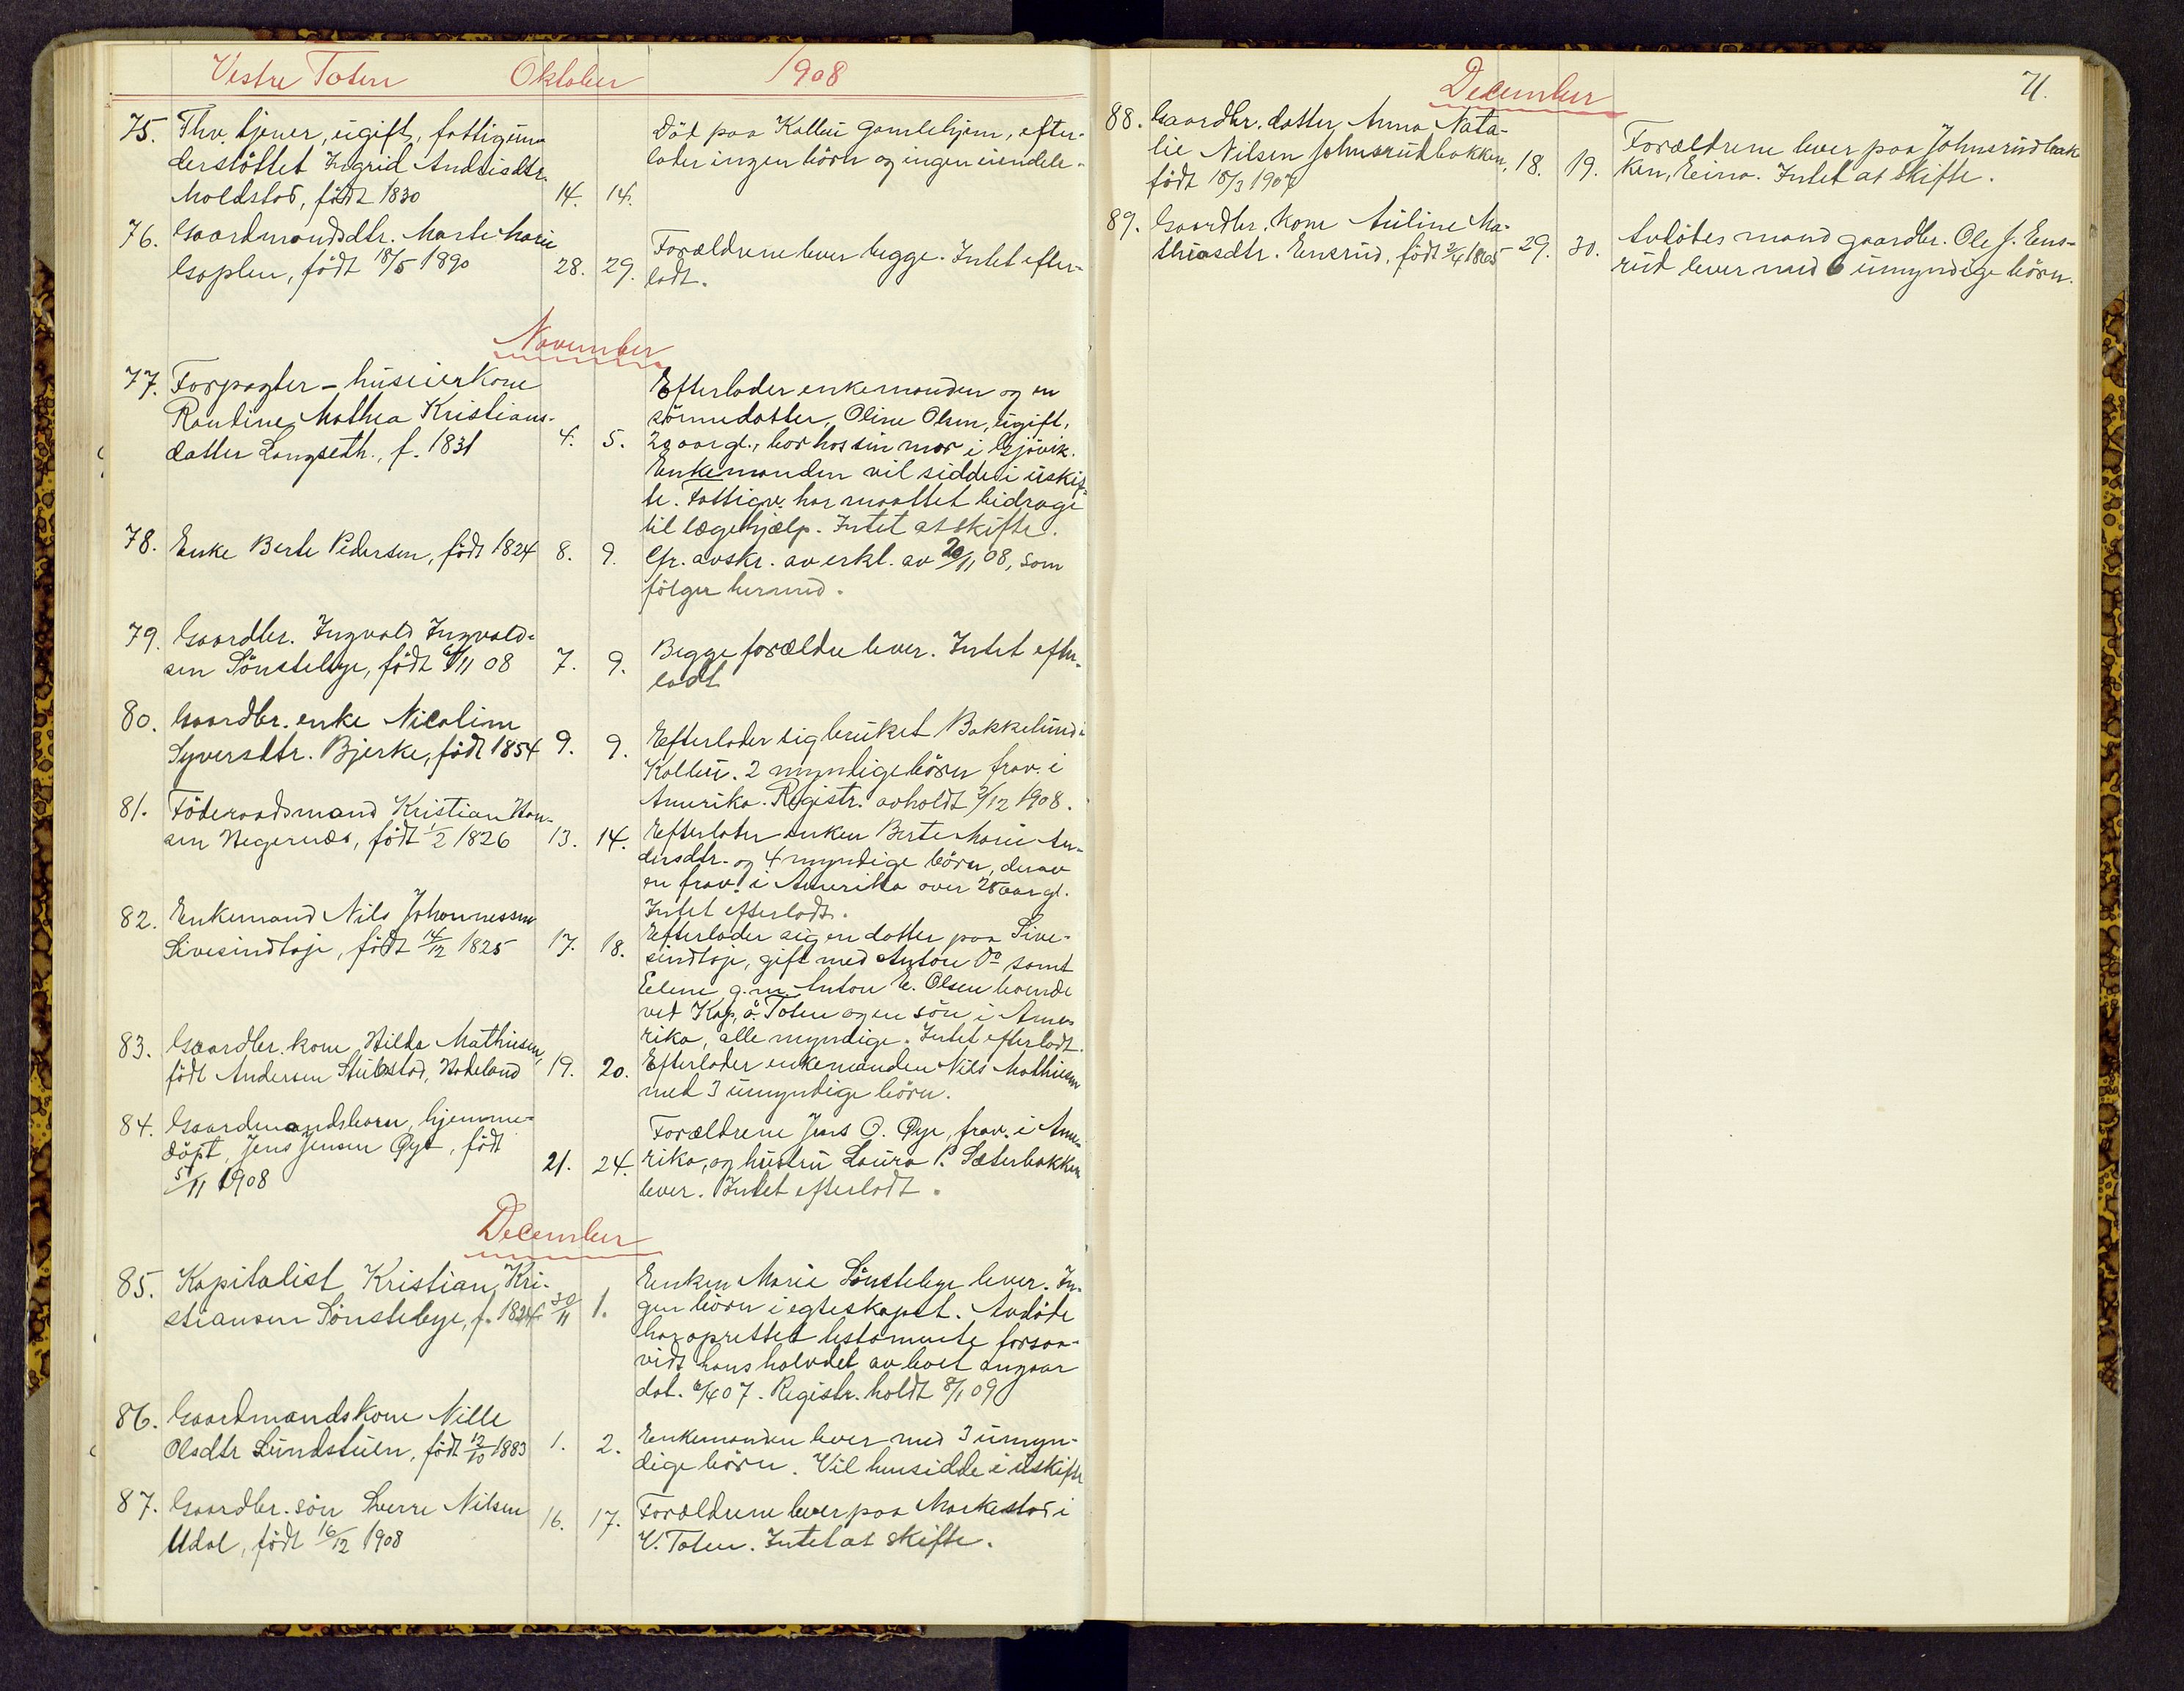 Vestre Toten Oktober 1908
75. Fhv. tjener, ugift, fattigun-
derstöttet Ingrid Andrisdtr.
Moldstad, født 1830 14. 14.
Död paa Kolbu Gamlehjem, efter-
lader ingen börn og ingen eiendele.
76. Gaardmandsdtr. Marte Marie
Gaplen, født 18/5 1890 28. 29.
Forældrene lever begge. Intet efter-
ladt.
November
77. Forpagter-huseierkone
Rantine Mathea Kristians-
datter Langseth, f. 1831 4. 5.
Efterlader enkemanden og en
sönnedatter, Oline Olsen, ugift,
29 aar gl., bor hos sin mor i Gjövik.
Enkemanden vil sidde i uskif-
te. Fattigv. har maattet bidrage
til lægehjælp. Intet at skifte.
78. Enke Berte Pedersen, født 1824 8. 9.
Cfr. avskr. av erkl. av 20/11 08, som
fölger hermed.
79. Gaardbr. Ingvald Ingvald-
sen Sönsteby, født 6/11 08 7. 9.
Begge forældre lever. Intet efter-
ladt
80. Gaardbr. enke Nicoline
Syversdtr. Bjerke, født 1854 9. 9.
Efterlader sig bruket Bakkelund i
Kolbu. 2 myndige börn frav. i
Amerika. Registr. avholdt 2/12 1908.
81. Föderaadsmand Kristian Han-
sen Hegernæs, født 1/2 1826 13. 14.
Efterlader enken Berte Marie An-
dersdtr. og 4 myndige börn, derav
en frav. i Amerika over 25 aar gl.
Intet efterladt.
82. Enkemand Nils Johannessen
Sivesindtaje, født 14/12 1825 17. 18.
Efterlader sig en datter paa Sive-
sindtaje, gift med Anton Do samt
Eline g. m. Anton E. Olsen boende
ved Kap, Ö. Toten og en sön i Ame-
rika, alle myndige. Intet efterladt.
83. Gaardbr. kone Hilda Mathiesen,
født Andersen Stubstad, Hadeland 19. 20.
Efterlader enkemanden Nils Mathiesen
med 3 umyndige börn.
84. Gaardmandsbarn, hjemme-
döpt, Jens Jensen Øye, født
5/11 1908 21. 24.
Forældrene Jens O. Øye, frav. i Ame-
rika, og hustru Laura P. Sæterbakken
lever. Intet efterladt.
December
85. Kapitalist Kristian Kri-
stiansen Sönsteby, f. 1824 30/11 1.
Enken Marie Sönsteby lever. In-
gen börn i egteskapet. Avdöde
har oprettet testamente forsaa-
vidt hans halvdel av boet angaar
dat. 6/4 07. Registr. holdt 8/1 09
86. Gaardmandskone Nille
Olsdtr Lundstuen, født 12/10 1883 1. 2.
Enkemanden lever med 3 umyn-
dige börn. Vil hensidde i uskifte
87. Gaardbr. sön Sverre Nilsen
Udal, født 16/12 1908 16. 17.
Forældrene lever paa Markestad i
V. Toten. Intet at skifte.
December 71.
88. Gaardbr. datter Anna Nata-
lie Nilsen Johnsrudbakken,
født 18/3 1907 18. 19.
Forældrene lever paa Johnsrudbak-
ken, Eina. Intet at skifte.
89. Gaardbr. kone Auline Ma-
thiasdtr. Ensrud, født 2/4 1865 29. 30.
Avdödes mand gaardbr. Ole J. Ens-
rud lever med 6 umyndige börn.